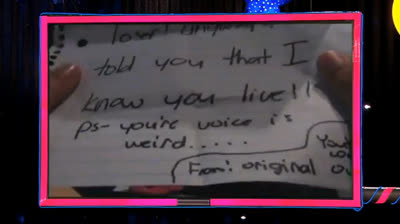 loser!
told you that I
know you live!!
ps- you're voice is
weird.....
From: original